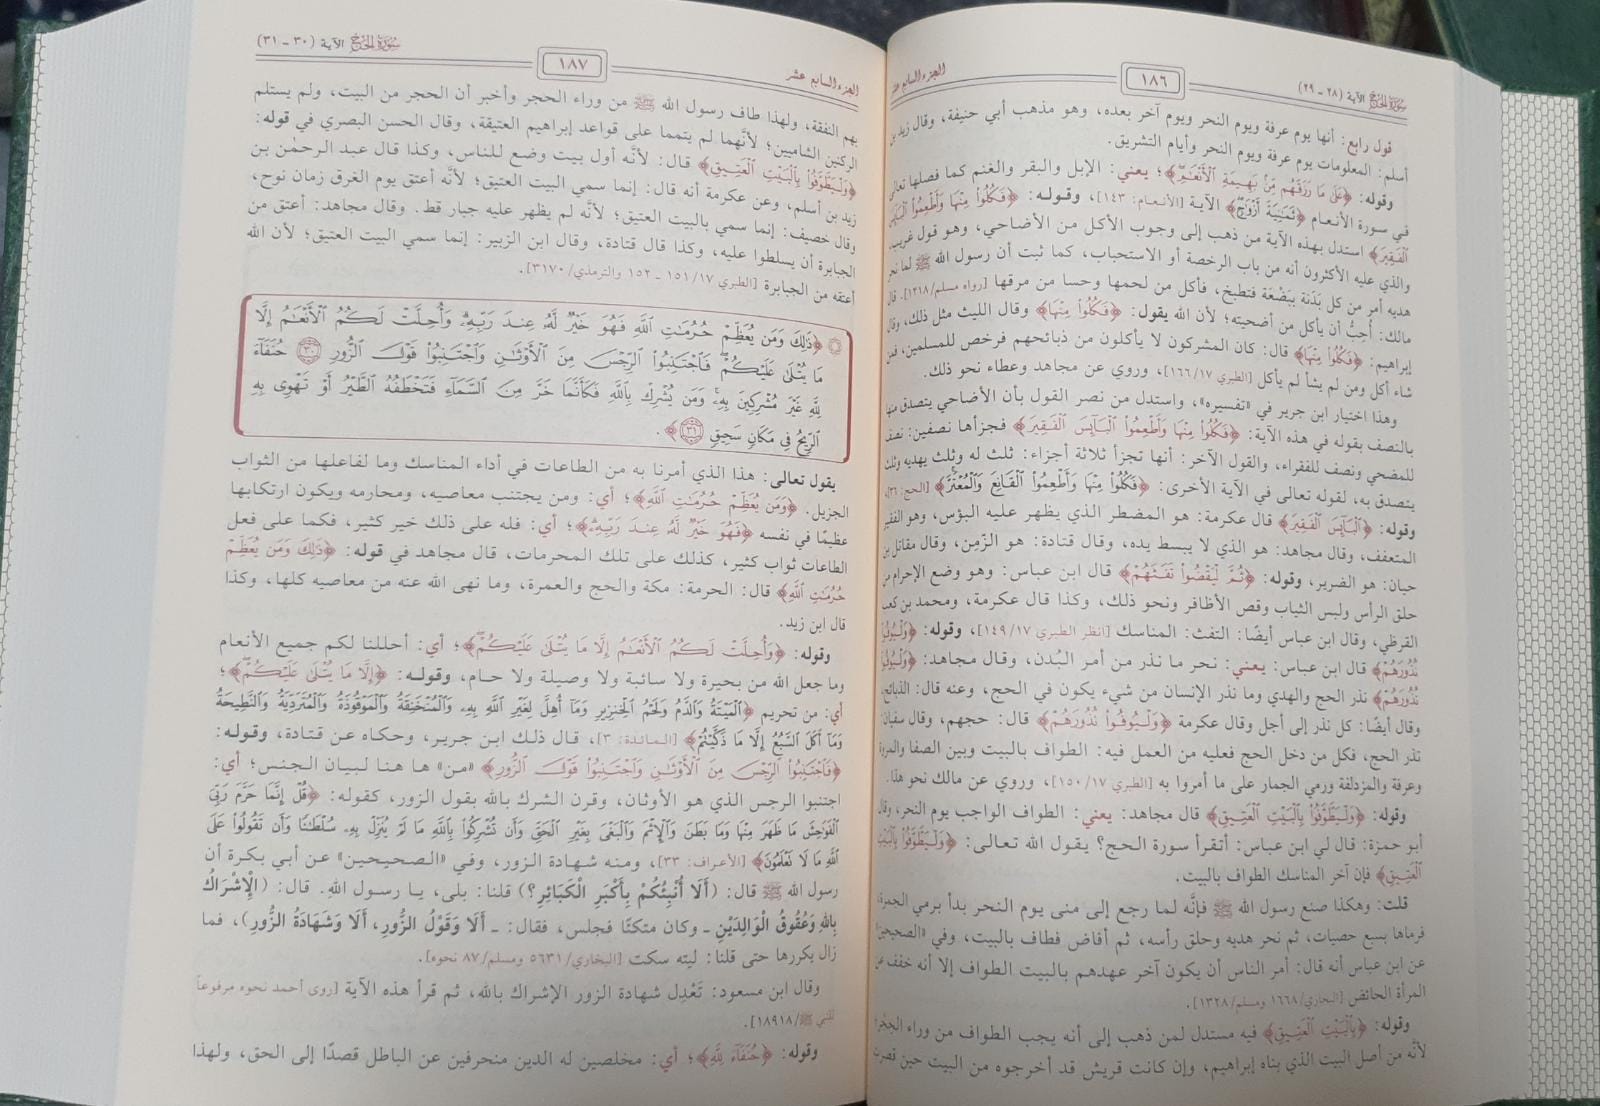 سورة الحج الآية (٢٨ ـ ٢٩)
١٨٦
الجزء السابع عشر
قول رابع: أنها يوم عرفة ويوم النحر ويوم آخر بعده، وهو مذهب أبي حنيفة، وقال زيد بن
أسلم: المعلومات يوم عرفة ويوم النحر وأيام التشريق.
وقوله: ﴿عَلَىٰ مَا رَزَقَهُم مِّنۢ بَهِيمَةِ ٱلْأَنْعَٰمِ﴾؛ يعني: الإبل والبقر والغنم كما فصلها تعالى
في سورة الأنعام ﴿ثَمَٰنِيَةَ أَزْوَٰجٍ﴾ الآية [الأنعام: ١٤٣]، وقوله: ﴿فَكُلُوا۟ مِنْهَا وَأَطْعِمُوا۟ ٱلْبَآئِسَ
ٱلْفَقِيرَ﴾ استدل بهذه الآية من ذهب إلى وجوب الأكل من الأضاحي، وهو قول غريب،
والذي عليه الأكثرون أنه من باب الرخصة أو الاستحباب، كما ثبت أن رسول الله ﷺ لما نحر
هديه أمر من كل بَدَنة ببَضْعَة فتطبخ، فأكل من لحمها وحسا من مرقها [رواه مسلم/١٢١٨]. قال
مالك: أُحِبُّ أن يأكل من أضحيته؛ لأن الله يقول: ﴿فَكُلُوا۟ مِنْهَا﴾ وقال الليث مثل ذلك، وقال
إبراهيم: ﴿فَكُلُوا۟ مِنْهَا﴾ قال: كان المشركون لا يأكلون من ذبائحهم فرخص للمسلمين، فمن
شاء أكل ومن لم يشأ لم يأكل [الطبري ١٦٦/١٧]، وروي عن مجاهد وعطاء نحو ذلك.
وهذا اختيار ابن جرير في «تفسيره»، واستدل من نصر القول بأن الأضاحي يتصدق منها
بالنصف بقوله في هذه الآية: ﴿فَكُلُوا۟ مِنْهَا وَأَطْعِمُوا۟ ٱلْبَآئِسَ ٱلْفَقِيرَ﴾ فجزأها نصفين: نصف
للمضحي ونصف للفقراء، والقول الآخر: أنها تجزأ ثلاثة أجزاء: ثلث له وثلث يهديه وثلث
يتصدق به، لقوله تعالى في الآية الأخرى: ﴿فَكُلُوا۟ مِنْهَا وَأَطْعِمُوا۟ ٱلْقَانِعَ وَٱلْمُعْتَرَّ﴾ [الحج: ٣٦]،
وقوله: ﴿ٱلْبَآئِسَ ٱلْفَقِيرَ﴾ قال عكرمة: هو المضطر الذي يظهر عليه البؤس، وهو الفقير
المتعفف، وقال مجاهد: هو الذي لا يبسط يده، وقال قتادة: هو الزّمِن، وقال مقاتل بن
حيان: هو الضرير، وقوله: ﴿ثُمَّ لْيَقْضُوا۟ تَفَثَهُمْ﴾ قال ابن عباس: وهو وضع الإحرام من
حلق الرأس ولبس الثياب وقص الأظافر ونحو ذلك، وكذا قال عكرمة، ومحمد بن كعب
القرظي، وقال ابن عباس أيضًا: التفث: المناسك [انظر الطبري ١٤٩/١٧]، وقوله: ﴿وَلْيُوفُوا۟
نُذُورَهُمْ﴾ قال ابن عباس: يعني: نحر ما نذر من أمر البُدن، وقال مجاهد: ﴿وَلْيُوفُوا۟
نُذُورَهُمْ﴾ نذر الحج والهدي وما نذر الإنسان من شيء يكون في الحج، وعنه قال: الذبائح،
وقال أيضًا: كل نذر إلى أجل وقال عكرمة ﴿وَلْيُوفُوا۟ نُذُورَهُمْ﴾ قال: حجهم، وقال سفيان:
نذر الحج، فكل من دخل الحج فعليه من العمل فيه: الطواف بالبيت وبين الصفا والمروة
وعرفة والمزدلفة ورمي الجمار على ما أمروا به [الطبري ١٥٠/١٧]، وروي عن مالك نحو هذا.
وقوله: ﴿وَلْيَطَّوَّفُوا۟ بِٱلْبَيْتِ ٱلْعَتِيقِ﴾ قال مجاهد: يعني: الطواف الواجب يوم النحر، وقال
أبو حمزة: قال لي ابن عباس: أتقرأ سورة الحج؟ يقول الله تعالى: ﴿وَلْيَطَّوَّفُوا۟ بِٱلْبَيْتِ
ٱلْعَتِيقِ﴾ فإن آخر المناسك الطواف بالبيت.
قلت: وهكذا صنع رسول الله ﷺ فإنَّه لما رجع إلى منى يوم النحر بدأ برمي الجمرة،
فرماها بسبع حصيات، ثم نحر هديه وحلق رأسه، ثم أفاض فطاف بالبيت، وفي «الصحيحين»
عن ابن عباس أنه قال: أمر الناس أن يكون آخر عهدهم بالبيت الطواف إلا أنه خفف عن
المرأة الحائض [البخاري/١٦٦٨ ومسلم/١٣٢٨].
وقوله: ﴿بِٱلْبَيْتِ ٱلْعَتِيقِ﴾ فيه مستدل لمن ذهب إلى أنه يجب الطواف من وراء الحِجْر؛
لأنَّه من أصل البيت الذي بناه إبراهيم، وإن كانت قريش قد أخرجوه من البيت حين قصرت
الجزء السابع عشر
١٨٧
سورة الحج الآية (٣٠ ـ ٣١)
بهم النفقة، ولهذا طاف رسول الله ﷺ من وراء الحجر وأخبر أن الحجر من البيت، ولم يستلم
الركنين الشاميين؛ لأنَّهما لم يتمما على قواعد إبراهيم العتيقة، وقال الحسن البصري في قوله:
﴿وَلْيَطَّوَّفُوا۟ بِٱلْبَيْتِ ٱلْعَتِيقِ﴾ قال: لأنَّه أول بيت وضع للناس، وكذا قال عبد الرحمٰن بن
زيد بن أسلم، وعن عكرمة أنه قال: إنما سمي البيت العتيق؛ لأنَّه أعتق يوم الغرق زمان نوح،
وقال خصيف: إنما سمي بالبيت العتيق؛ لأنَّه لم يظهر عليه جبار قط. وقال مجاهد: أعتق من
الجبابرة أن يسلطوا عليه، وكذا قال قتادة، وقال ابن الزبير: إنما سمي البيت العتيق؛ لأن الله
أعتقه من الجبابرة [الطبري ١٥١/١٧ ـ ١٥٢ والترمذي/٣١٧٠].
﴿ذَٰلِكَ وَمَن يُعَظِّمْ حُرُمَٰتِ ٱللَّهِ فَهُوَ خَيْرٌ لَّهُۥ عِندَ رَبِّهِۦ وَأُحِلَّتْ لَكُمُ ٱلْأَنْعَٰمُ إِلَّا
مَا يُتْلَىٰ عَلَيْكُمْ فَٱجْتَنِبُوا۟ ٱلرِّجْسَ مِنَ ٱلْأَوْثَٰنِ وَٱجْتَنِبُوا۟ قَوْلَ ٱلزُّورِ ٣٠ حُنَفَآءَ
لِلَّهِ غَيْرَ مُشْرِكِينَ بِهِۦ وَمَن يُشْرِكْ بِٱللَّهِ فَكَأَنَّمَا خَرَّ مِنَ ٱلسَّمَآءِ فَتَخْطَفُهُ ٱلطَّيْرُ أَوْ تَهْوِى بِهِ
ٱلرِّيحُ فِى مَكَانٍ سَحِيقٍ ٣١﴾.
يقول تعالى: هذا الذي أمرنا به من الطاعات في أداء المناسك وما لفاعلها من الثواب
الجزيل. ﴿وَمَن يُعَظِّمْ حُرُمَٰتِ ٱللَّهِ﴾؛ أي: ومن يجتنب معاصيه، ومحارمه ويكون ارتكابها
عظيمًا في نفسه ﴿فَهُوَ خَيْرٌ لَّهُۥ عِندَ رَبِّهِۦ﴾؛ أي: فله على ذلك خير كثير، فكما على فعل
الطاعات ثواب كثير، كذلك على تلك المحرمات، قال مجاهد في قوله: ﴿ذَٰلِكَ وَمَن يُعَظِّمْ
حُرُمَٰتِ ٱللَّهِ﴾ قال: الحرمة: مكة والحج والعمرة، وما نهى الله عنه من معاصيه كلها، وكذا
قال ابن زيد.
وقوله: ﴿وَأُحِلَّتْ لَكُمُ ٱلْأَنْعَٰمُ إِلَّا مَا يُتْلَىٰ عَلَيْكُمْ﴾؛ أي: أحللنا لكم جميع الأنعام
وما جعل الله من بحيرة ولا سائبة ولا وصيلة ولا حام، وقوله: ﴿إِلَّا مَا يُتْلَىٰ عَلَيْكُمْ﴾؛
أي: من تحريم ﴿ٱلْمَيْتَةُ وَٱلدَّمُ وَلَحْمُ ٱلْخِنزِيرِ وَمَآ أُهِلَّ لِغَيْرِ ٱللَّهِ بِهِۦ وَٱلْمُنْخَنِقَةُ وَٱلْمَوْقُوذَةُ وَٱلْمُتَرَدِّيَةُ وَٱلنَّطِيحَةُ
وَمَآ أَكَلَ ٱلسَّبُعُ إِلَّا مَا ذَكَّيْتُمْ﴾ [المائدة: ٣]، قال ذلك ابن جرير، وحكاه عن قتادة، وقوله:
﴿فَٱجْتَنِبُوا۟ ٱلرِّجْسَ مِنَ ٱلْأَوْثَٰنِ وَٱجْتَنِبُوا۟ قَوْلَ ٱلزُّورِ﴾ «من» ها هنا لبيان الجنس؛ أي:
اجتنبوا الرجس الذي هو الأوثان، وقرن الشرك بالله بقول الزور، كقوله: ﴿قُلْ إِنَّمَا حَرَّمَ رَبِّىَ
ٱلْفَوَٰحِشَ مَا ظَهَرَ مِنْهَا وَمَا بَطَنَ وَٱلْإِثْمَ وَٱلْبَغْىَ بِغَيْرِ ٱلْحَقِّ وَأَن تُشْرِكُوا۟ بِٱللَّهِ مَا لَمْ يُنَزِّلْ بِهِۦ سُلْطَٰنًا وَأَن تَقُولُوا۟ عَلَى
ٱللَّهِ مَا لَا تَعْلَمُونَ﴾ [الأعراف: ٣٣]، ومنه شهادة الزور، وفي «الصحيحين» عن أبي بكرة أن
رسول الله ﷺ قال: (أَلَا أُنَبِّئُكُمْ بِأَكْبَرِ الْكَبَائِرِ؟) قلنا: بلى، يا رسول الله. قال: (الإِشْرَاكُ
بِاللهِ وَعُقُوقُ الْوَالِدَيْنِ ـ وكان متكئًا فجلس، فقال: ـ أَلَا وَقَوْلُ الزُّورِ، أَلَا وَشَهَادَةُ الزُّورِ)، فما
زال يكررها حتى قلنا: ليته سكت [البخاري/٥٦٣١ ومسلم/٨٧ نحوه].
وقال ابن مسعود: تَعْدِل شهادة الزور الإشراك بالله، ثم قرأ هذه الآية [روى أحمد نحوه مرفوعاً
للنبي ﷺ/١٨٩١٨].
وقوله: ﴿حُنَفَآءَ لِلَّهِ﴾؛ أي: مخلصين له الدين منحرفين عن الباطل قصدًا إلى الحق، ولهذا